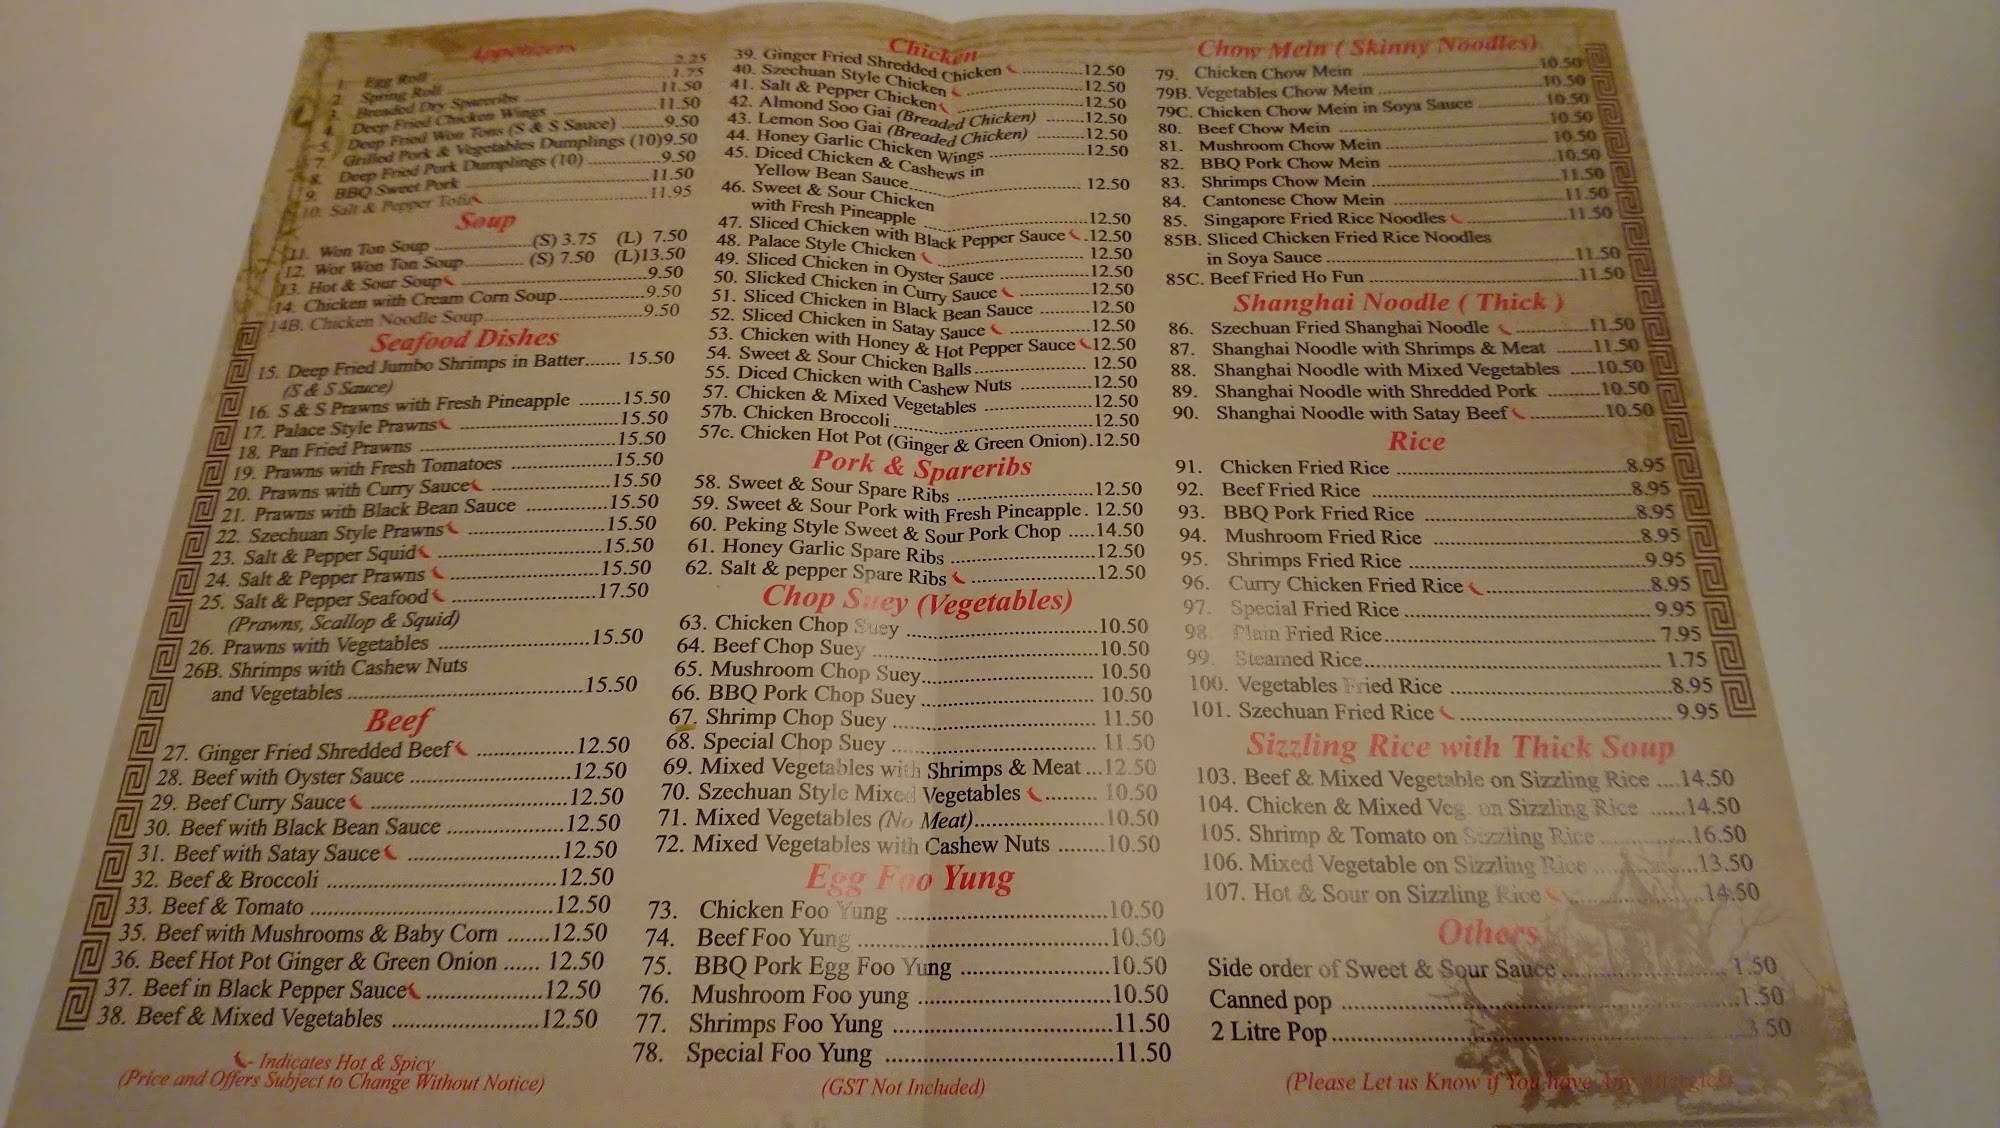 Appetizers
1. Egg Roll 2.25
2. Spring Roll 1.75
3. Breaded Dry Spareribs 11.50
4. Deep Fried Chicken Wings 11.50
5. Deep Fried Won Tons (S & S Sauce) 9.50
7. Grilled Pork & Vegetables Dumplings (10) 9.50
8. Deep Fried Pork Dumplings (10) 9.50
9. BBQ Sweet Pork 11.50
10. Salt & Pepper Tofu 11.95
Soup
11. Won Ton Soup (S) 3.75 (L) 7.50
12. Wor Won Ton Soup (S) 7.50 (L) 13.50
13. Hot & Sour Soup 9.50
14. Chicken with Cream Corn Soup 9.50
14B. Chicken Noodle Soup 9.50
Seafood Dishes
15. Deep Fried Jumbo Shrimps in Batter 15.50
(S & S Sauce)
16. S & S Prawns with Fresh Pineapple 15.50
17. Palace Style Prawns 15.50
18. Pan Fried Prawns 15.50
19. Prawns with Fresh Tomatoes 15.50
20. Prawns with Curry Sauce 15.50
21. Prawns with Black Bean Sauce 15.50
22. Szechuan Style Prawns 15.50
23. Salt & Pepper Squid 15.50
24. Salt & Pepper Prawns 15.50
25. Salt & Pepper Seafood 17.50
(Prawns, Scallop & Squid)
26. Prawns with Vegetables 15.50
26B. Shrimps with Cashew Nuts
and Vegetables 15.50
Beef
27. Ginger Fried Shredded Beef 12.50
28. Beef with Oyster Sauce 12.50
29. Beef Curry Sauce 12.50
30. Beef with Black Bean Sauce 12.50
31. Beef with Satay Sauce 12.50
32. Beef & Broccoli 12.50
33. Beef & Tomato 12.50
35. Beef with Mushrooms & Baby Corn 12.50
36. Beef Hot Pot Ginger & Green Onion 12.50
37. Beef in Black Pepper Sauce 12.50
38. Beef & Mixed Vegetables 12.50
- Indicates Hot & Spicy
(Price and Offers Subject to Change Without Notice)
Chicken
39. Ginger Fried Shredded Chicken 12.50
40. Szechuan Style Chicken 12.50
41. Salt & Pepper Chicken 12.50
42. Almond Soo Gai (Breaded Chicken) 12.50
43. Lemon Soo Gai (Breaded Chicken) 12.50
44. Honey Garlic Chicken Wings 12.50
45. Diced Chicken & Cashews in
Yellow Bean Sauce 12.50
46. Sweet & Sour Chicken
with Fresh Pineapple 12.50
47. Sliced Chicken with Black Pepper Sauce 12.50
48. Palace Style Chicken 12.50
49. Sliced Chicken in Oyster Sauce 12.50
50. Slicked Chicken in Curry Sauce 12.50
51. Sliced Chicken in Black Bean Sauce 12.50
52. Sliced Chicken in Satay Sauce 12.50
53. Chicken with Honey & Hot Pepper Sauce 12.50
54. Sweet & Sour Chicken Balls 12.50
55. Diced Chicken with Cashew Nuts 12.50
57. Chicken & Mixed Vegetables 12.50
57b. Chicken Broccoli 12.50
57c. Chicken Hot Pot (Ginger & Green Onion) 12.50
Pork & Spareribs
58. Sweet & Sour Spare Ribs 12.50
59. Sweet & Sour Pork with Fresh Pineapple 12.50
60. Peking Style Sweet & Sour Pork Chop 14.50
61. Honey Garlic Spare Ribs 12.50
62. Salt & pepper Spare Ribs 12.50
Chop Suey (Vegetables)
63. Chicken Chop Suey 10.50
64. Beef Chop Suey 10.50
65. Mushroom Chop Suey 10.50
66. BBQ Pork Chop Suey 10.50
67. Shrimp Chop Suey 11.50
68. Special Chop Suey 11.50
69. Mixed Vegetables with Shrimps & Meat 12.50
70. Szechuan Style Mixed Vegetables 10.50
71. Mixed Vegetables (No Meat) 10.50
72. Mixed Vegetables with Cashew Nuts 10.50
Egg Foo Yung
73. Chicken Foo Yung 10.50
74. Beef Foo Yung 10.50
75. BBQ Pork Egg Foo Yung 10.50
76. Mushroom Foo yung 10.50
77. Shrimps Foo Yung 11.50
78. Special Foo Yung 11.50
(GST Not Included)
Chow Mein ( Skinny Noodles)
79. Chicken Chow Mein 10.50
79B. Vegetables Chow Mein 10.50
79C. Chicken Chow Mein in Soya Sauce 10.50
80. Beef Chow Mein 10.50
81. Mushroom Chow Mein 10.50
82. BBQ Pork Chow Mein 10.50
83. Shrimps Chow Mein 11.50
84. Cantonese Chow Mein 11.50
85. Singapore Fried Rice Noodles 11.50
85B. Sliced Chicken Fried Rice Noodles
in Soya Sauce 11.50
85C. Beef Fried Ho Fun 11.50
Shanghai Noodle ( Thick )
86. Szechuan Fried Shanghai Noodle 11.50
87. Shanghai Noodle with Shrimps & Meat 11.50
88. Shanghai Noodle with Mixed Vegetables 10.50
89. Shanghai Noodle with Shredded Pork 10.50
90. Shanghai Noodle with Satay Beef 10.50
Rice
91. Chicken Fried Rice 8.95
92. Beef Fried Rice 8.95
93. BBQ Pork Fried Rice 8.95
94. Mushroom Fried Rice 8.95
95. Shrimps Fried Rice 9.95
96. Curry Chicken Fried Rice 8.95
97. Special Fried Rice 9.95
98. Plain Fried Rice 7.95
99. Steamed Rice 1.75
100. Vegetables Fried Rice 8.95
101. Szechuan Fried Rice 9.95
Sizzling Rice with Thick Soup
103. Beef & Mixed Vegetable on Sizzling Rice 14.50
104. Chicken & Mixed Veg. on Sizzling Rice 14.50
105. Shrimp & Tomato on Sizzling Rice 16.50
106. Mixed Vegetable on Sizzling Rice 13.50
107. Hot & Sour on Sizzling Rice 14.50
Others
Side order of Sweet & Sour Sauce 1.50
Canned pop 1.50
2 Litre Pop 3.50
(Please Let us Know if You have Any Allergies)